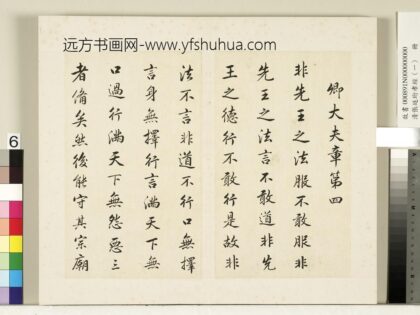 远方书画网-www.yfshuhua.com
卿大夫章第四
非先王之法服不敢服非
先王之法言不敢道非先
王之德行不敢行是故非
法不言非道不行口無擇
言身無擇行言滿天下無
口過行滿天下無怨惡三
者備矣然後能守其宗廟
6